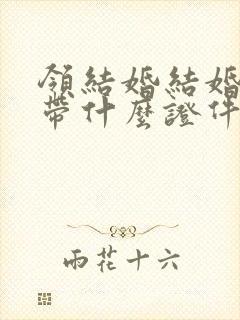 領結婚結婚
帶什麼證件
雨花十六